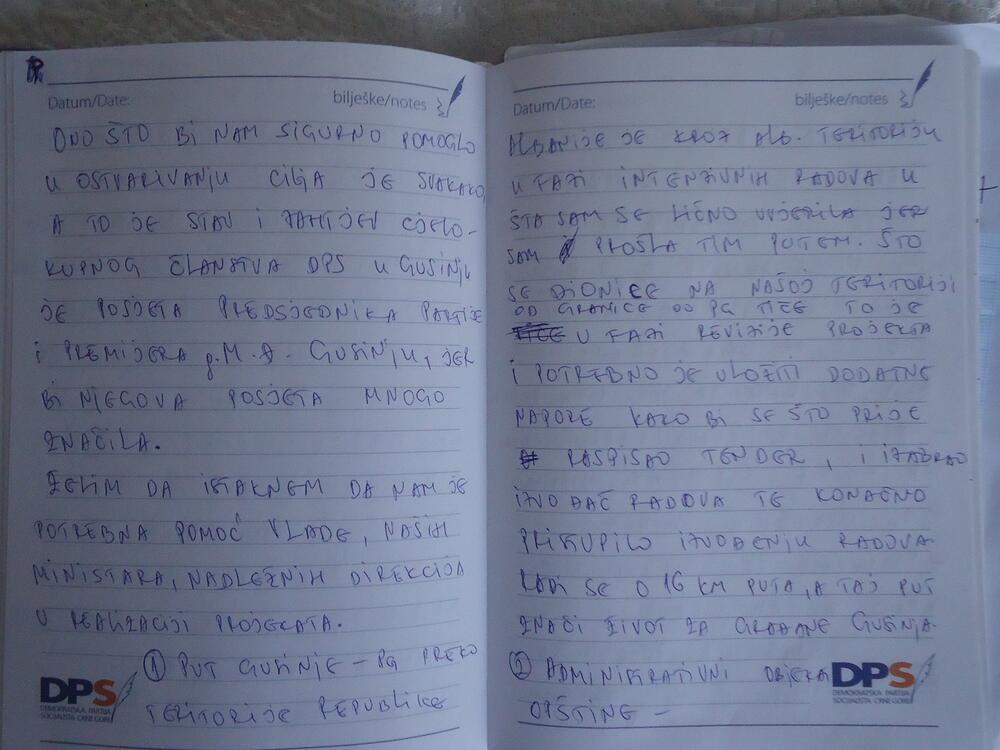 Datum/Date: bilješke/notes
ONO ŠTO BI NAM SIGURNO POMOGLO
U OSTVARIVANJU CILJA JE SVAKAKO,
A TO JE STAV I ZAHTJEV CJELO-
KUPNOG ČLANSTVA DPS U GUSINJU
JE POSJETA PREDSJEDNIKA PARTIJE
I PREMIJERA g. M. Đ. GUSINJU, JER
BI NJEGOVA POSJETA MNOGO
ZNAČILA.
ŽELIM DA ISTAKNEM DA NAM JE
POTREBNA POMOĆ VLADE, NAŠIH
MINISTARA, NADLEŽNIH DIREKCIJA
U REALIZACIJI PROJEKATA.
① PUT GUSINJE – PG PREKO
TERITORIJE REPUBLIKE
DPS
DEMOKRATSKA PARTIJA
SOCIJALISTA CRNE GORE
Datum/Date: bilješke/notes
ALBANIJE JE KROZ ALB. TERITORIJU
U FAZI INTENZIVNIH RADOVA U
ŠTA SAM SE LIČNO UVJERILA JER
SAM PROŠLA TIM PUTEM. ŠTO
SE DIONICE NA NAŠOJ TERITORIJI
OD GRANICE DO PG TIČE TO JE
U FAZI REVIZIJE PROJEKTA
I POTREBNO JE ULOŽITI DODATNE
NAPORE KAKO BI SE ŠTO PRIJE
RASPISAO TENDER, I IZABRAO
IZVOĐAČ RADOVA TE KONAČNO
PRISTUPILO IZVOĐENJU RADOVA
RADI SE O 16 KM PUTA, A TAJ PUT
ZNAČI ŽIVOT ZA GRAĐANE GUSINJA.
② ADMINISTRATIVNI OBJEKAT
OPŠTINE –
DPS
DEMOKRATSKA PARTIJA
SOCIJALISTA CRNE GORE